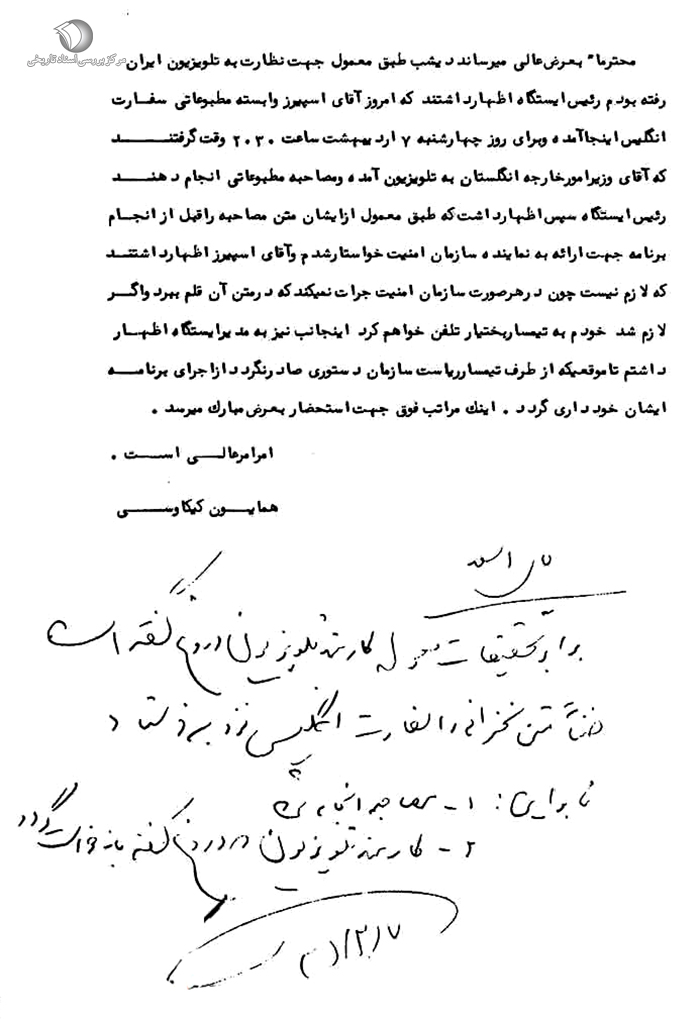 مرکز بررسی اسناد تاریخی
محترما" بعرض عالی میرساند دیشب طبق معمول جهت نظارت به تلویزیون ایران
رفته بودم رئیس ایستگاه اظهارداشتند که امروز آقای اسپیرز وابسته مطبوعاتی سفارت
انگلیس اینجا آمده وبرای روز چهارشنبه ۷ اردیبهشت ساعت ۲۰۳۰ وقت گرفتند
که آقای وزیرامورخارجه انگلستان به تلویزیون آمده ومصاحبه مطبوعاتی انجام دهند
رئیس ایستگاه سپس اظهارداشت که طبق معمول ازایشان متن مصاحبه راقبل از انجام
برنامه جهت ارائه به نماینده سازمان امنیت خواستارشدم وآقای اسپیرز اظهارداشتند
که لازم نیست چون درهرصورت سازمان امنیت جرات نمیکند که درمتن آن قلم ببرد واگر
لازم شد خودم به تیمساربختیار تلفن خواهم کرد اینجانب نیز به مدیرایستگاه اظهار
داشتم تاموقعیکه از طرف تیمسارریاست سازمان دستوری صادرنگردد ازاجرای برنامه
ایشان خودداری گردد . اینک مراتب فوق جهت استحضار بعرض مبارک میرسد .
امرامرعالی است .
همایون کیکاوسی
تحقیقات کارمند تلویزیون دروغ گفته است
ضمناً متن سخنرانی را سفارت انگلیس فرستاد
بنابراین : ۱ - مصاحبه
۲ - کارمند تلویزیون دروغ گفته بازخواست گردد